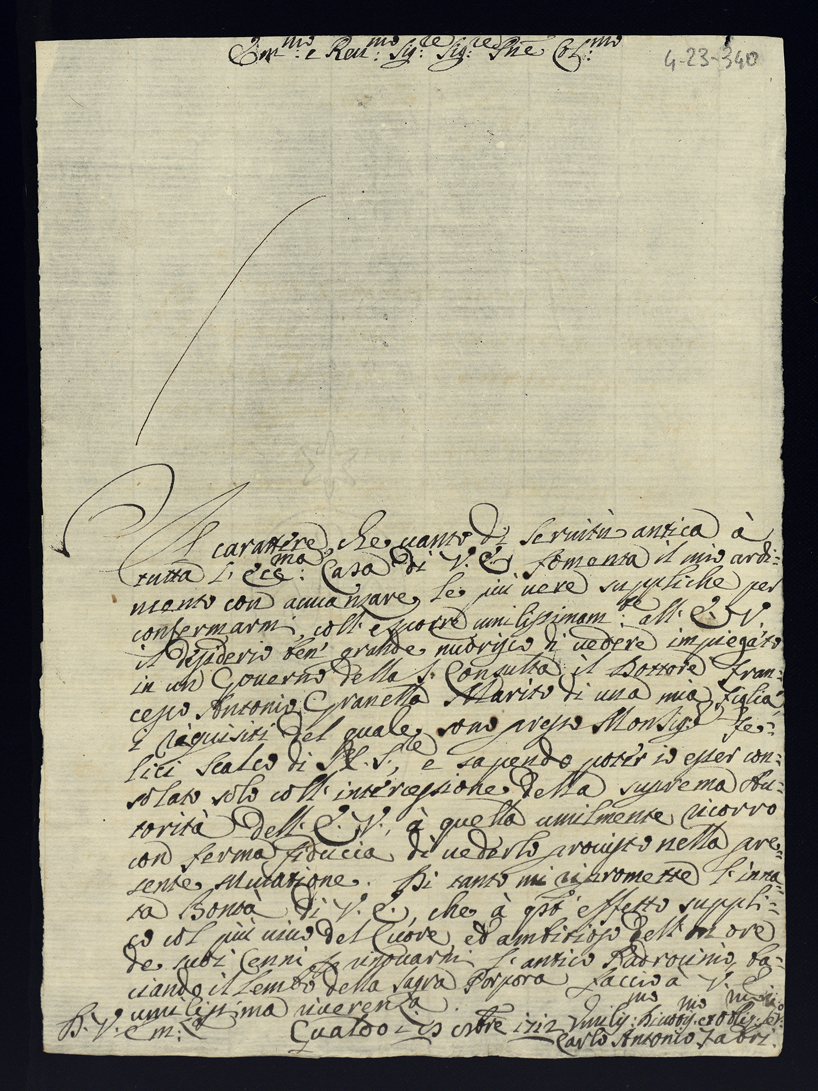 Em:mo e Reu:mo Sig:re Sig:re Pne Col:mo
4-23-340
Il carattere, che uanto di seruitù antica à
tutta l'ecc:ma Casa di V. E. fomenta il mio ardi=
mento con auuanzare, le più uere suppliche per
confermarmi, coll'esporre umilissimam:te all'E. V.
il desiderio ben grande nudrisco di uedere impiegato
in un Gouerno della S. Consulta il Dottore Fran=
cesco Antonio Granella Marito di una mia figlia,
i requisiti del quale, sono presso Monsig:r Fe=
lici Scalco di N. S.re, e sapendo poter io esser con=
solato solo coll'intercessione, della suprema Au=
torità dell'E. V., à quella umilmente ricorro
con ferma fiducia di uederlo prouisto nella pre=
sente Mutazione. Di tanto mi ripromette l'inna=
ta Bontà di V. E., che à qsto effetto suppli=
co col più uiuo del Cuore, ed ambitioso dell'onore
de suoi Cenni l'antico Padrocinio, ba=
ciando il lembo della Sagra Porpora faccio à V. E.
umilissima riuerenza.
D. V. Em:a Gualdo 1712 Umiliss:mo
Carlo Antonio Fabri.